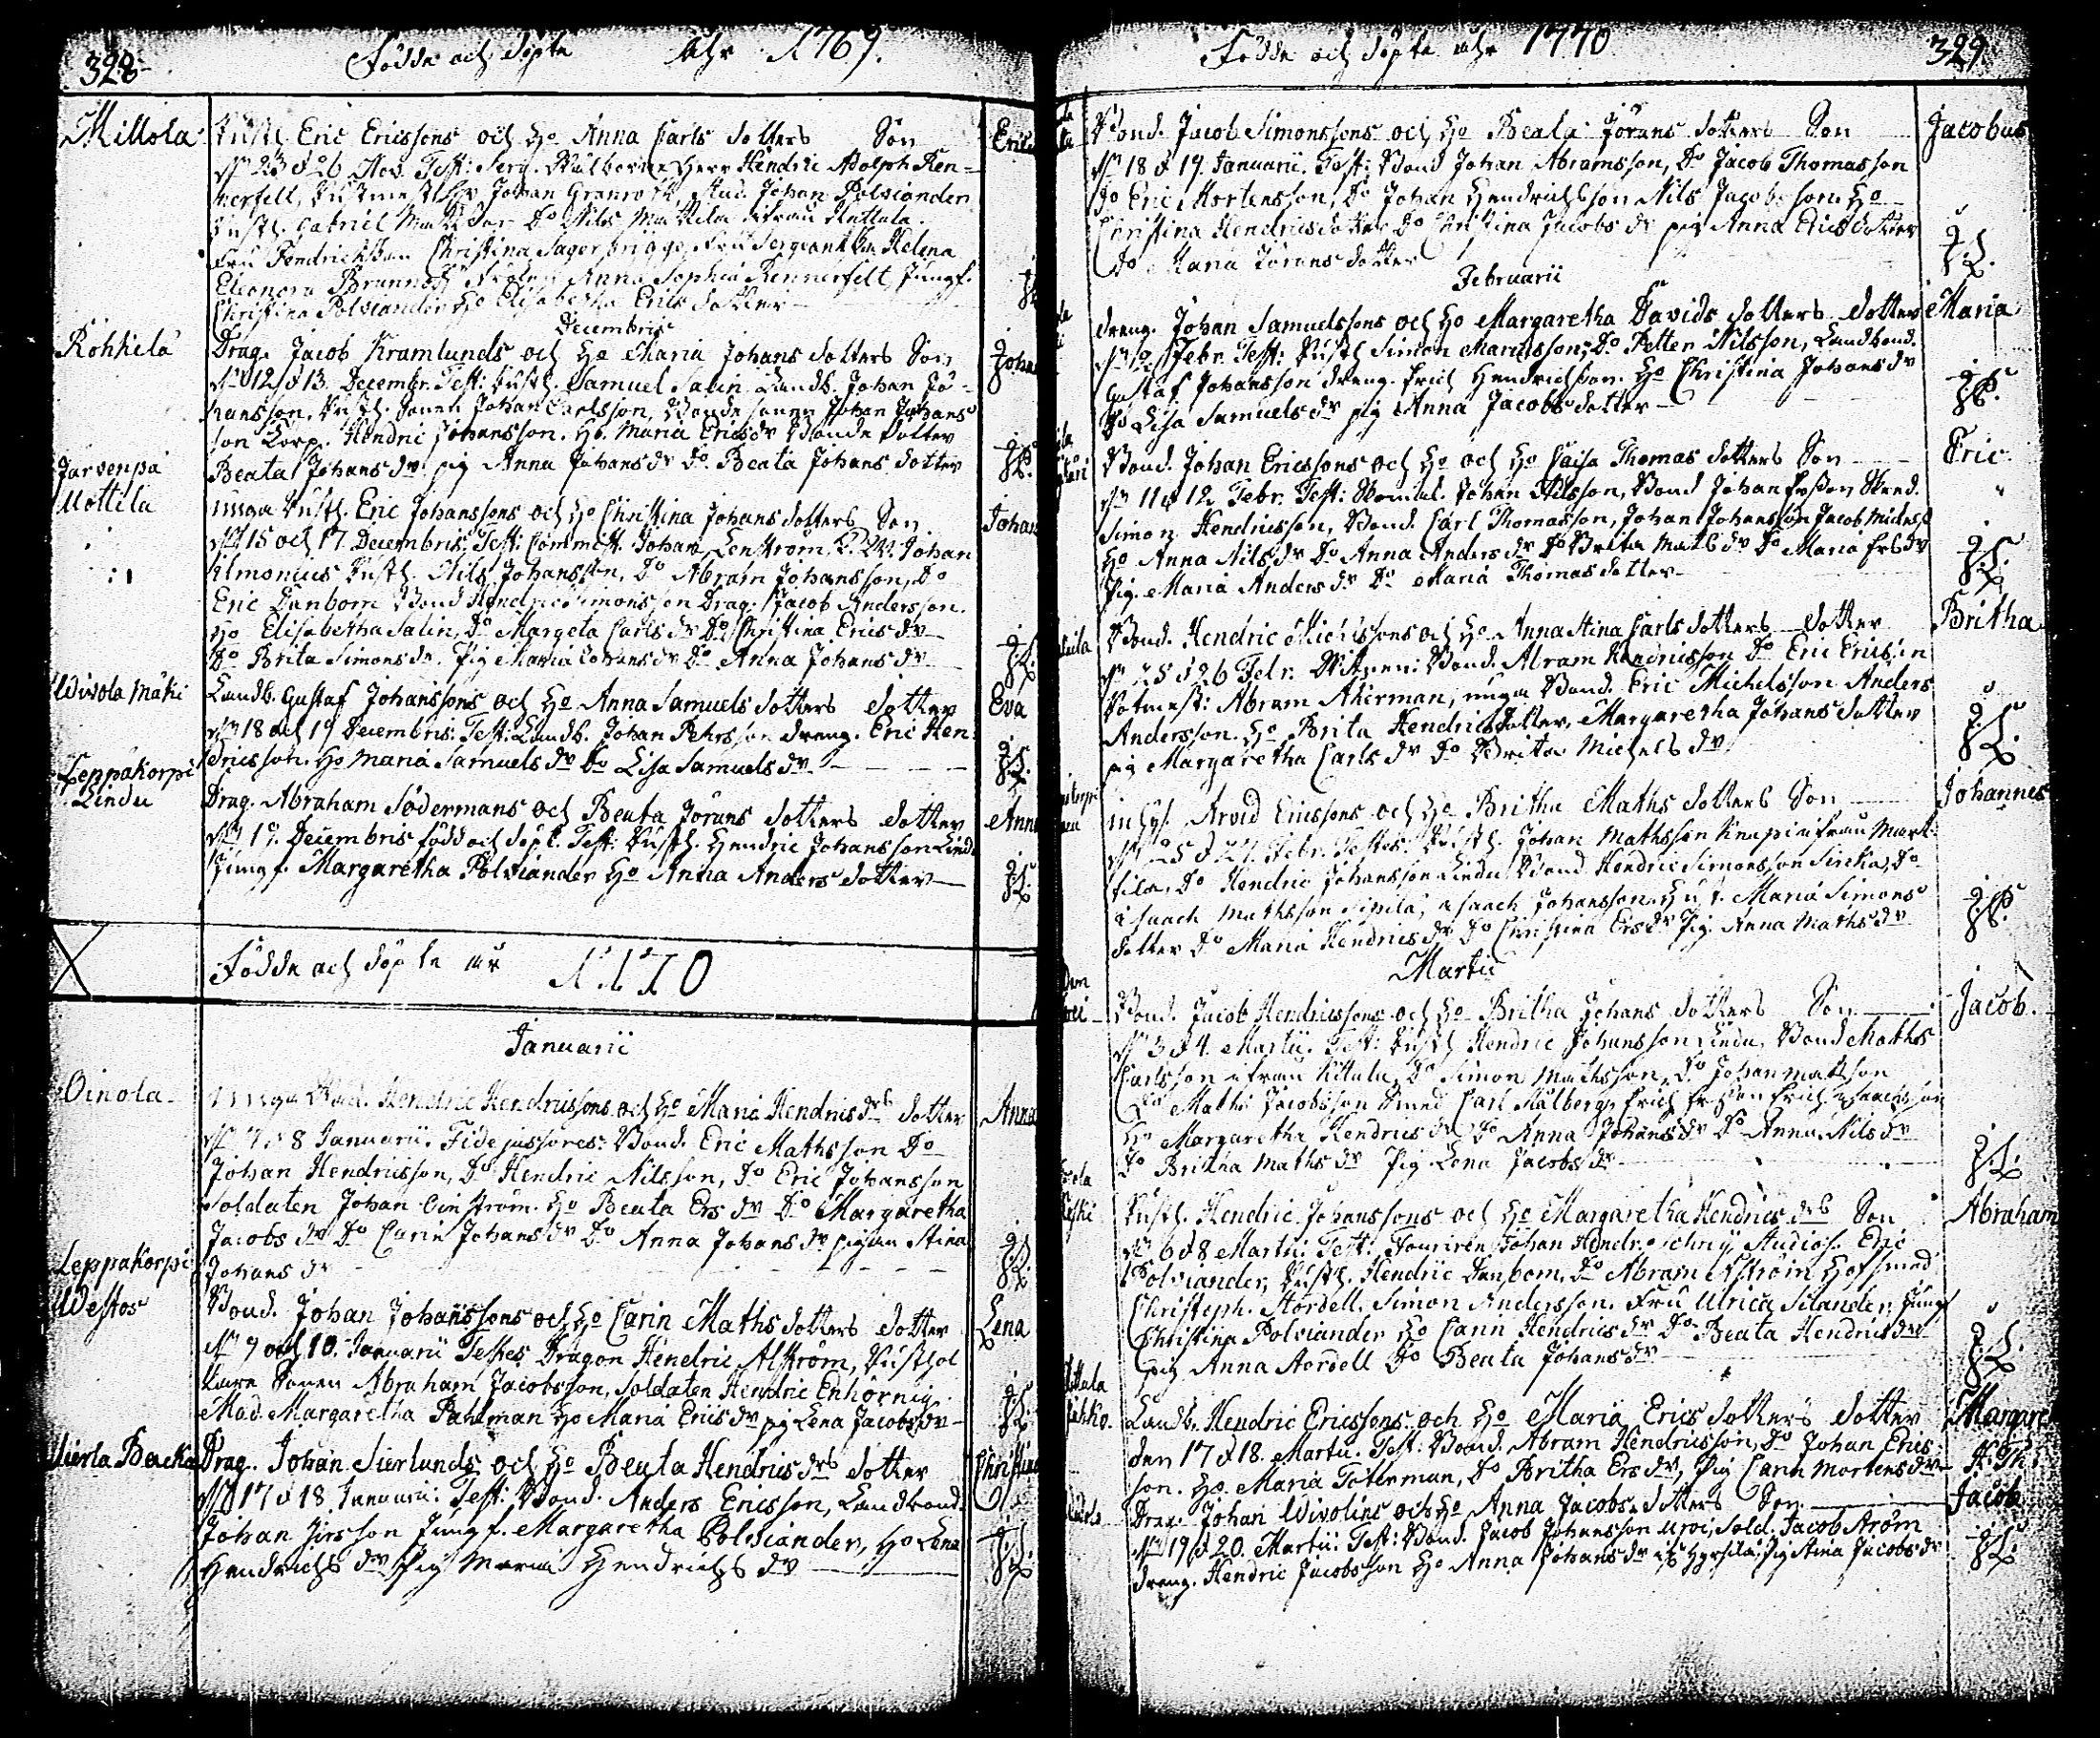 328
Födde och döpte Åhr 1769.
Millola
Rusth. Eric Ericssons och Ho Anna Carls dotters Son
Eric
dn 23 d 26 Nov. Test: Serg. Wälborne Herr Hendric Adolph Ren=
nerfelt, Johan Granroth, Stud. Johan Polviander
Rusth. Gabriel Do Nils Mattila ifrån Kattala.
Fru Fendrickskan Christina Lagerbrigge, Fru Sergeantskan Helena
Eleonora Fröken Anna Sophia Rennerfelt Jungf.
Christina Polviander Ho Elisabetha Erics dotter
Decembris
Röhkilä
Drag. Jacob Kramlunds och Ho Maria Johans dotters Son
Johan
dn 12 d 13 Decembr. Test: Rusth. Samuel Salin Landb. Johan Jo-
hansson, Rusth. Sonen Johan Carlsson, Bonde sonen Johan Johans
son Corp. Hendric Johansson. Ho. Maria Ericsdr Bonde dotter
Beata Johans dr. pig Anna Johans dr Do. Beata Johans dotter
Järvenpä
Uottila
unga Rusth. Eric Johanssons och Ho Christina Johans dotters Son
Johan
dn 15 och 17 Decembris. Test: Commist. Johan Lenström. Johan
Rusth. Nils Johansson, Do Abram Johansson, Do
Eric Danbom Bond Hendric Simonsson Drag: Jacob Andersson.
Ho Elisabetha Salin, Do Margeta Carls dr Do Christina Erics dr
Do Brita Simons dr. Pig Maria Johans dr Do Anna Johans dr
Wivola Mäki
Landb. Gustaf Johanssons och Ho Anna Samuels dotters dotter
Eva
dn 18 och 19 Decembris: Test: Landb. Johan Pehrsson dreng. Eric Hen-
dricsson. Ho Maria Samuels dr Do Lisa Samuels dr
Leppäkorpi
Lindu
Drag. Abraham Södermans och Beata Jörans dotters dotter
Anna
dn 19. Decembris född och döpt. Test: Rusth. Hendric Johansson Lindu
Jungf. Margaretha Polviander Ho Anna Anders dotter
Födde och döpte år 1770
Januarii
Oinola
unga Bond. Hendric Hendricssons och Ho Maria Hendrics drs dotter
Anna
dn 7 d 8 Januarii. Fidejussores: Bond. Eric Mathsson Do
Johan Hendricsson, Do Hendric Nilsson, Do Eric Johansson
Soldaten Johan Oinström. Ho Beata Ers dr Do Margaretha
Jacobs dr Do Carin Johans dr Do Anna Johans dr pigan Stina
Johans dr
Leppäkorpi
Westos
Bond. Johan Johanssons och Ho Carin Maths dotters dotter
Lena
dn 9 och 10. Januarii Testes Dragon Hendric Alström, Rusthol
lare Sonen Abraham Jacobsson, Soldaten Hendric Enhörnig
Mad. Margaretha Pahlman Ho Maria Erics dr pig Lena Jacobs dr
Sierla Backa
Drag. Johan Sierlunds och Ho Beata Hendrics drs dotter
Christina
dn 17 d 18 Januarii: Test: Bond. Anders Ericsson, Landbond.
Johan Jirsson Jungf. Margaretha Polviander, Ho Lena
Hendrichs dr Pig Maria Hendrichs dr
Födde och döpte åhr 1770
329
Bond. Jacob Simonssons och Ho Beata Jörans dotters Son
Jacobus
dn 18 d 19. Januarii. Test: Bond Johan Abramsson, Do Jacob Thomasson
Do Eric Mortensson, Do Johan Hendrichsson Nils Jacobsson Ho
Christina Hendricsdotter Do Christina Jacobs dr pig Anna Erics dotter
Do Maria Jörans dotter
Februarii
dreng. Johan Samuelssons och Ho Margaretha Davids dotters dotter
Maria
Febr. Test: Rusth Simon Do Petter Nilsson, Landbond.
Gustaf Johansson dreng. Erich Hendrichsson. Ho Christina Johans dr
Do Lisa Samuels dr pig Anna Jacobs dotter
Bond. Johan Ericssons och Ho och Ho Caisa Thomas dotters Son
Eric
dn 11 d 12. Febr. Test: Johan Nilsson, Bond Johan
Simon Hendricsson, Bond. Carl Thomasson, Johan Johansson Jacob
Ho Anna Nils dr Do Anna Anders dr Do Brita Mats dr Do Maria
Pig. Maria Anders dr Do Maria Thomas dotter
Bond. Hendric Michelssons och Ho Anna Stina Carls dotters dotter
Britha
dn 25 d 26 Febr. Witnen: Bond. Abram Hendricsson Do Eric Ericsson
Abram Åkerman, unga Bond. Eric Michelsson Anders
Andersson. Ho Brita Hendrics dotter, Margaretha Johans dotter
pig Margaretha Carls dr Do Brita Michels dr
Inhys. Arvid Ericssons och Ho Britha Maths dotters Son
Johannes
dn 25 d 27. Febr. Testes: Rusth. Johan Mathsson ifrån Mart-
tila, Do Hendric Johansson Lindu Bond Hendric Simonsson Do
Isaach Mathsson Sipilä, Isaach Johansson Maria Simons
dotter Do Maria Hendrics dr Do Christina Ers dr Pig. Anna Maths dr
Martii
Bond. Jacob Hendricssons och Ho Britha Johans dotters Son
Jacob.
dn 3 d 4. Martii. Test: Rusth Hendric Johansson Lindu, Bond Maths
Carlsson ifrån Kitula, Do Simon Mathsson, Do Johan Mattson
Do Maths Jacobsson Smed Carl Målberg,
Ho Margaretha Hendrics dr Do Anna Johans dr Do Anna Nils dr
Do Britha Maths dr Pig. Lena Jacobs dr
Rusth. Hendric Johanssons och Ho Margaretha Hendrics drs Son
Abraham
dn 6 d 8 Martii. Test: Johan Studios. Eric
Polviander, Rusth. Hendric Danbom, Do Abram Alström Hofsmed
Christoph. Nordell, Simon Andersson. Fru Ulrica Silander, Jungf
Christina Polviander Ho Carin Hendrics dr Do Beata Hendrics dr
pig Anna Nordell Do Beata Johans dr
Landb. Hendric Ericssons och Ho Maria Erics dotters dotter
Margare
den 17 d 18. Martii. Test: Bond. Abram Hendricsson, Do Johan Erics-
son. Ho. Maria Toterman, Do Britha Ers dr, Pig Carin Mortens dr
Drag. Johan Wivolins och Ho Anna Jacobs dotters Son
Jacob
dn 19 d 20. Martii: Test: Bond. Jacob Johansson Sold. Jacob Ström
dreng. Hendric Jacobsson Ho Anna Johans dr Pig Stina Jacobs dr